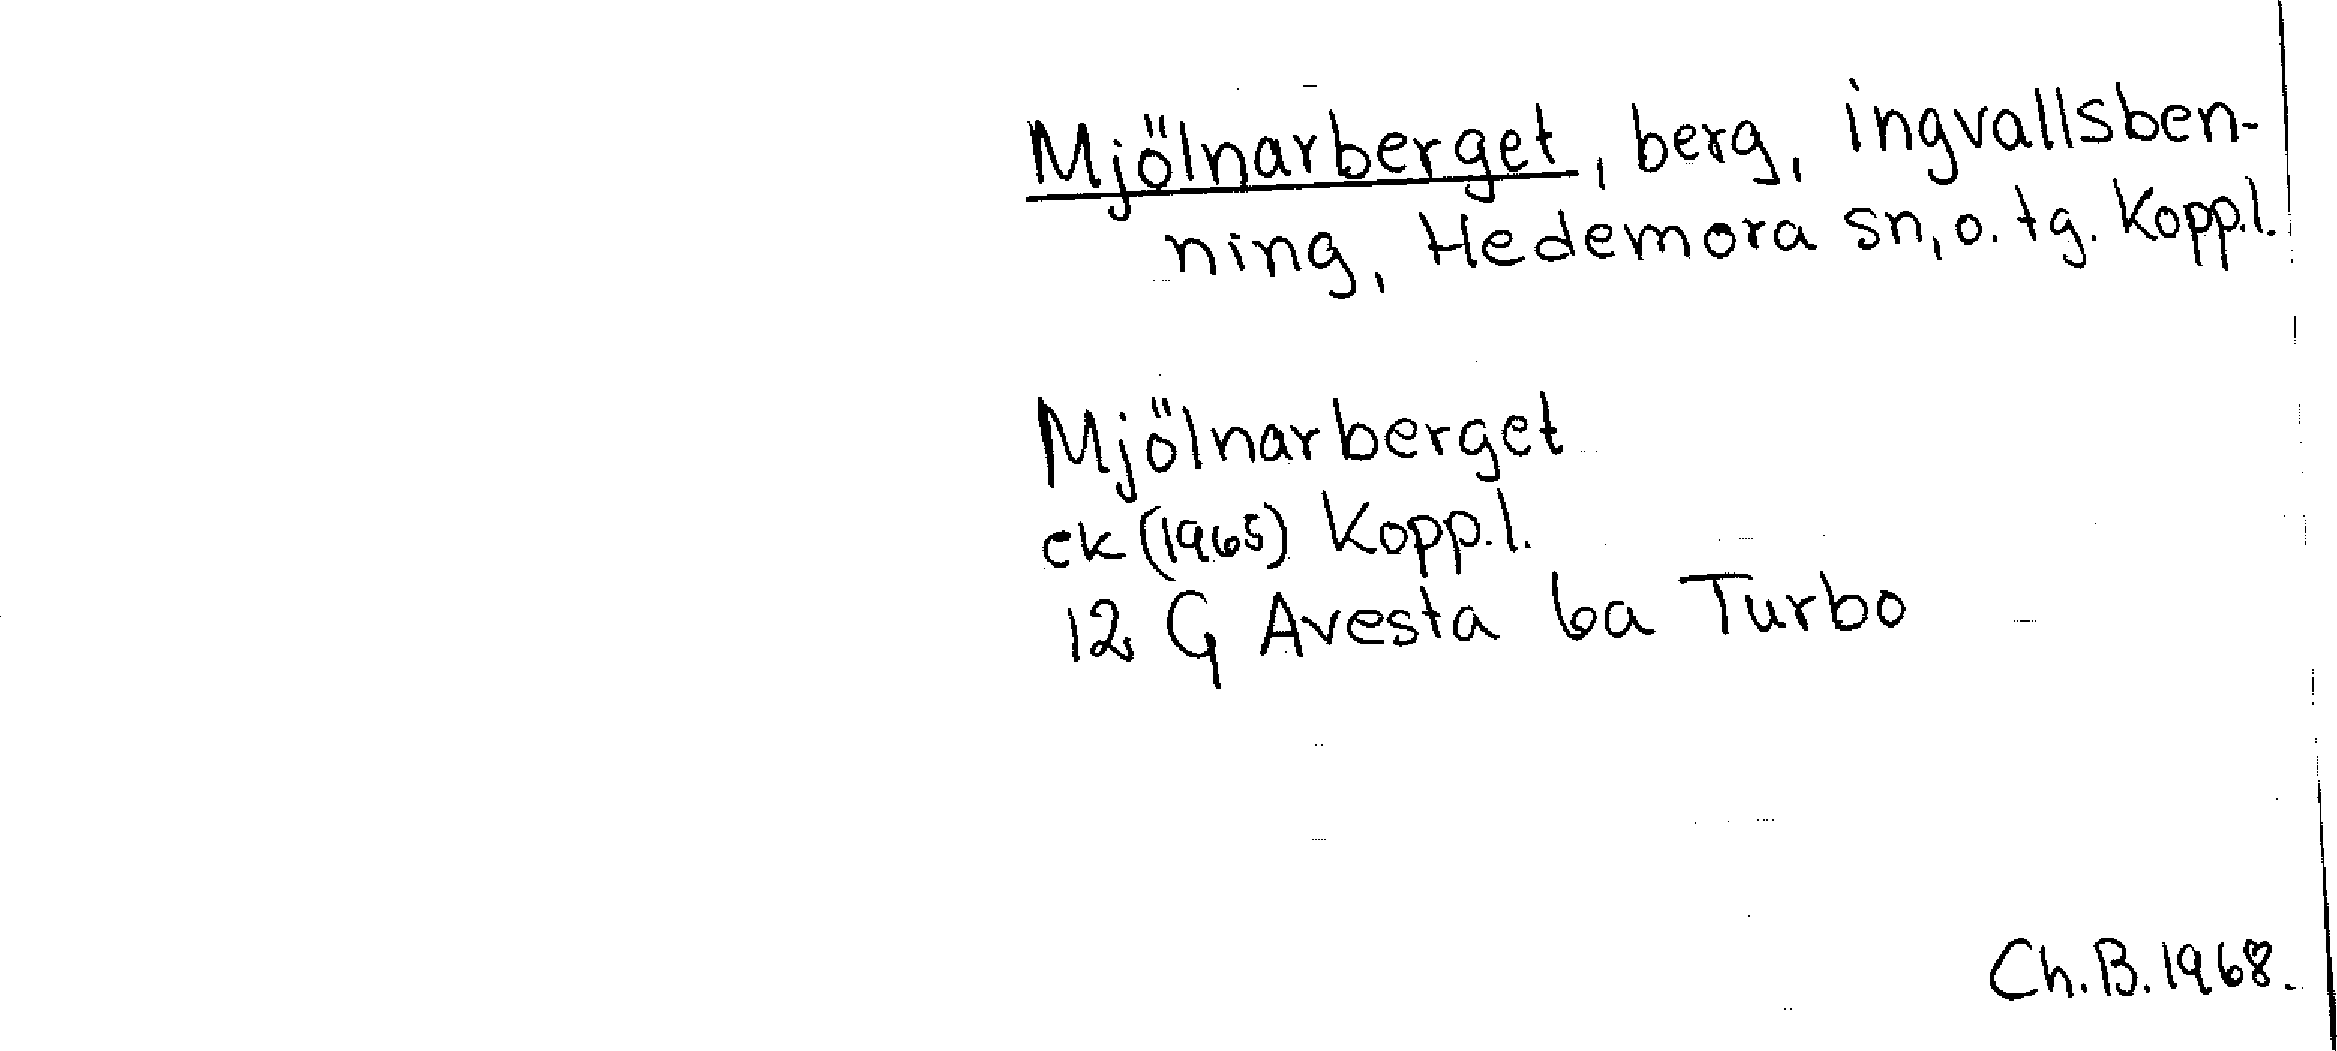 Mjölnarberget, berg, ingvallsben-
ning, Hedemora sn, o. tg. Kopp.l.
Mjölnarberget
ek (1965) Kopp.l.
12 G Avesta 6a Turbo
Ch.B.1968.